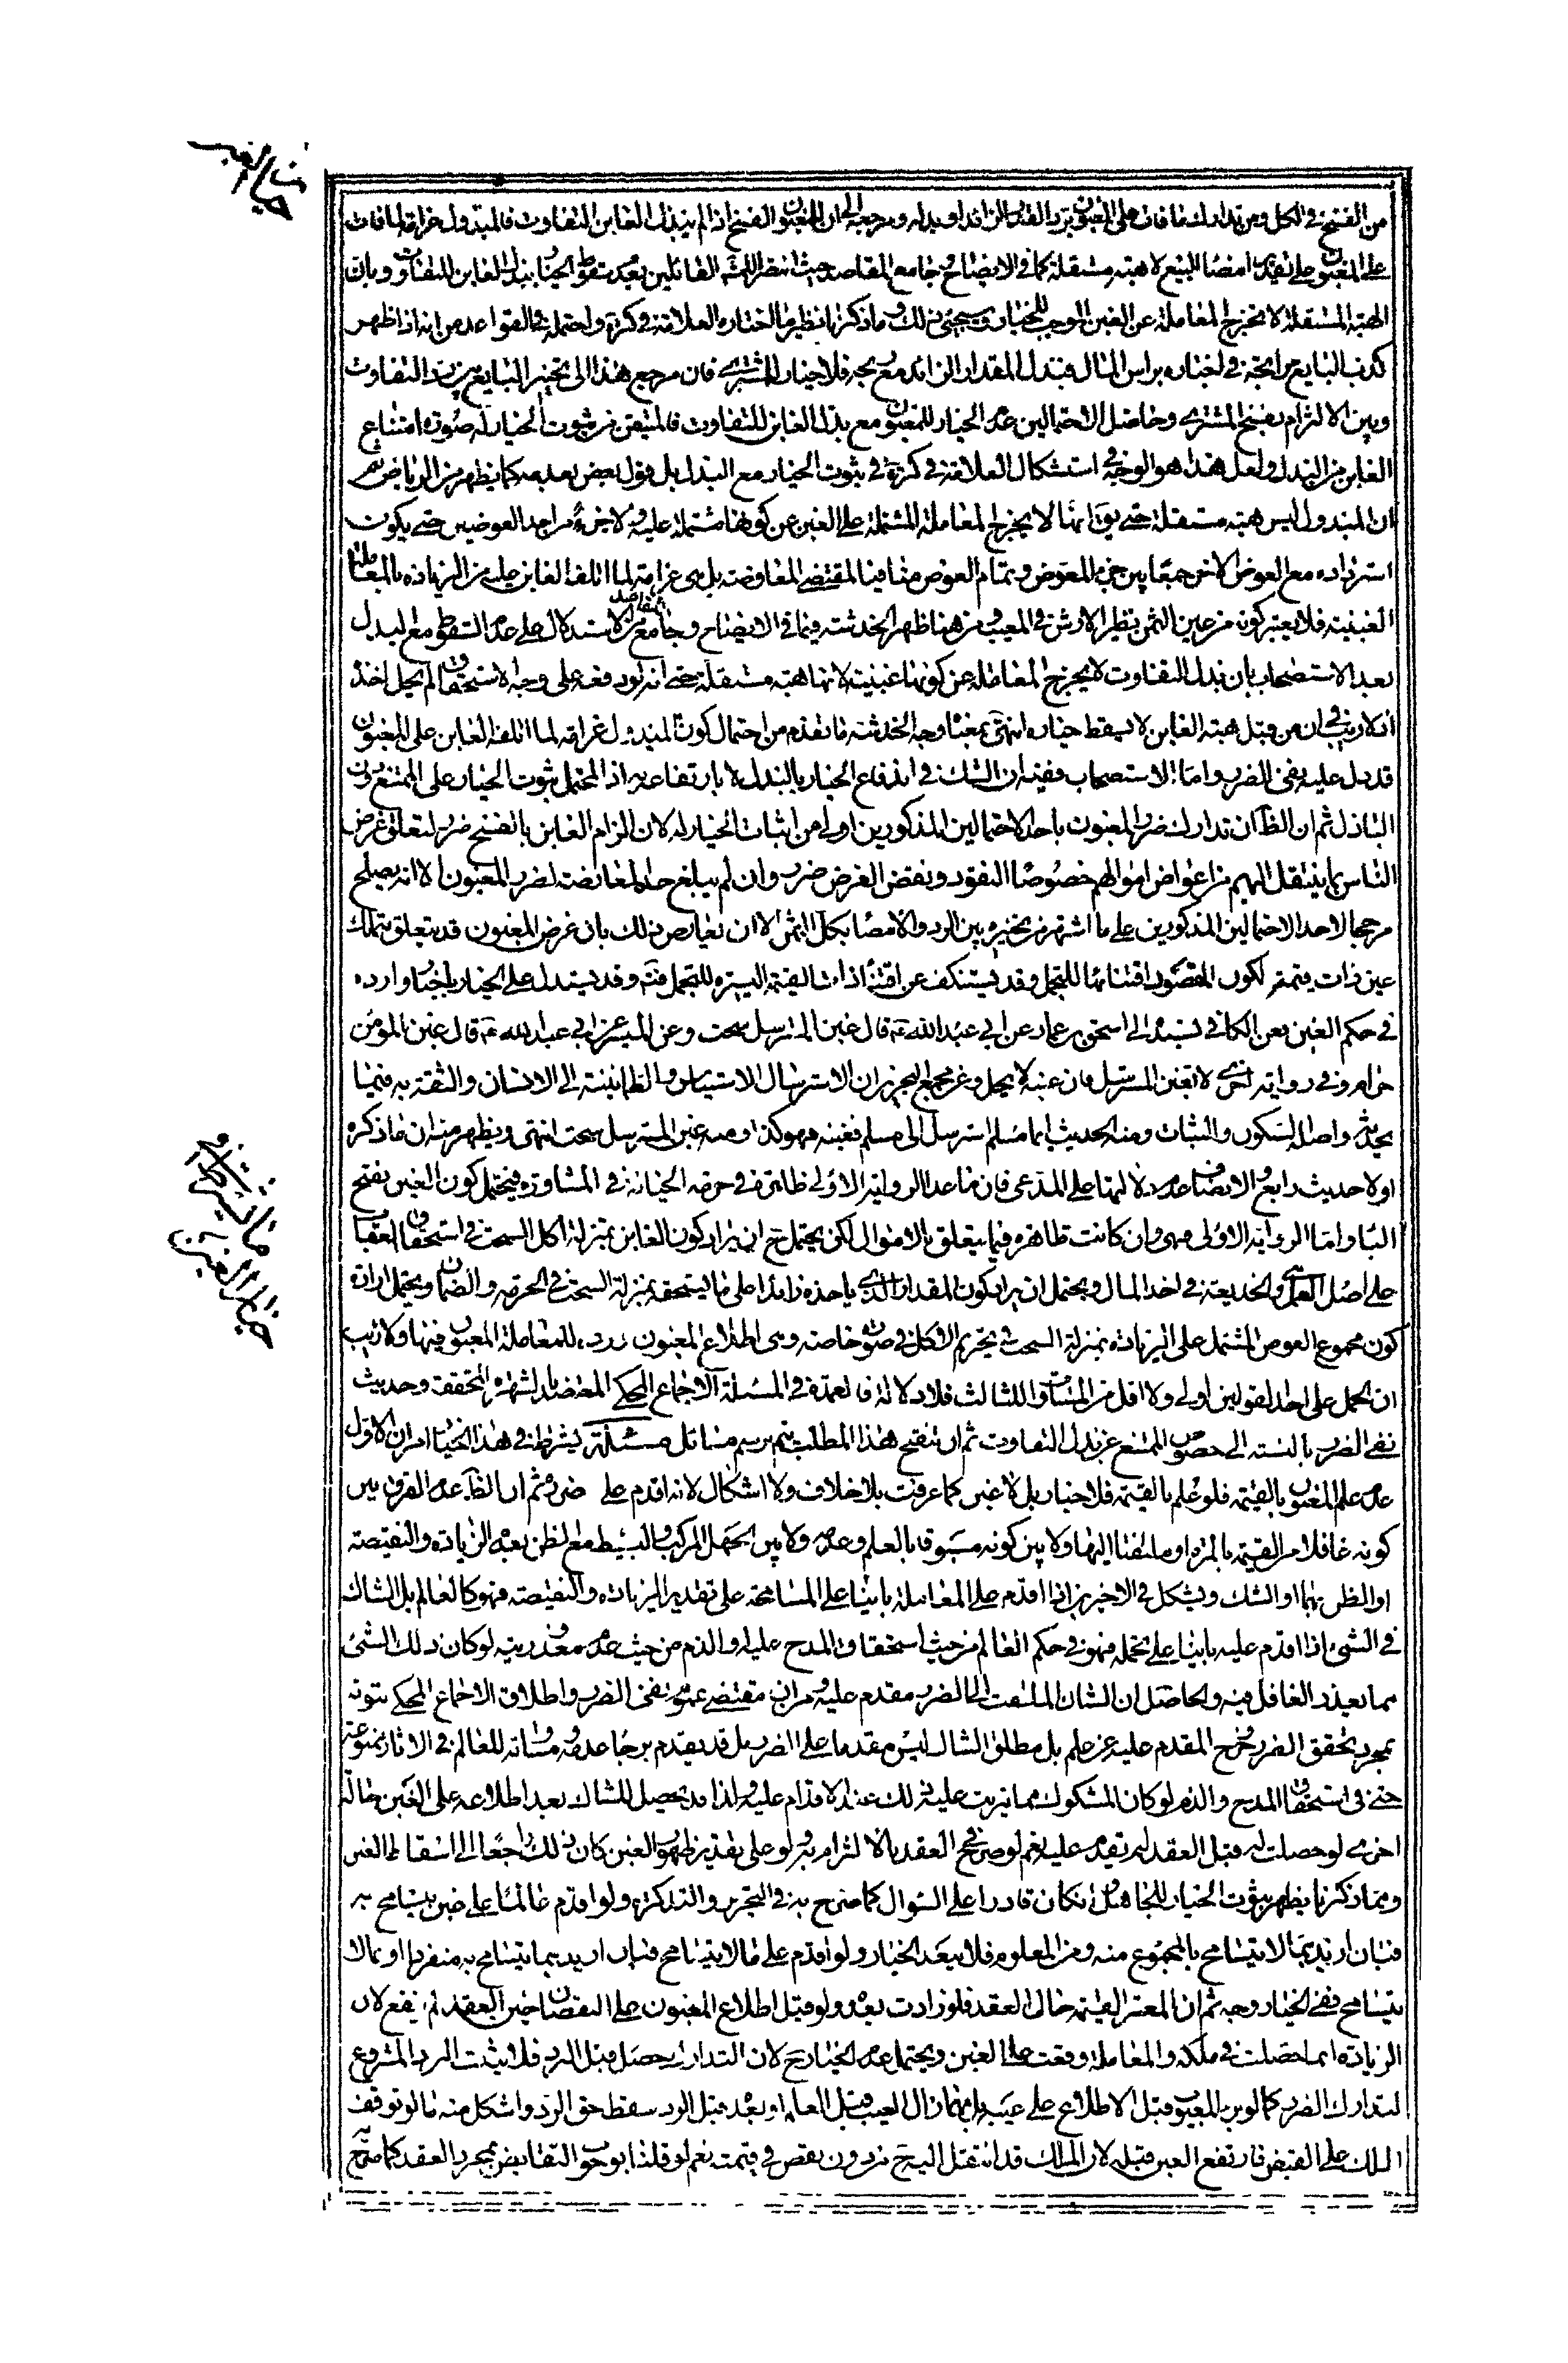 خيار الغبن
من الفسخ في الكل ومن تدارك ما فات على المغبون برد القدر الزائد او بدله ومرجعه الى ان للمغبون الفسخ اذا لم يبذل الغابن التفاوت فالمبذول غرامة لما فات
على المغبون على تقدير امضاء البيع لا هبة مستقلة كما في الايضاح وجامع المقاصد حيث انتصرا للمشهور القائلين بعدم سقوط الخيار ببذل الغابن للتفاوت وبان
الهبة المستقلة لا تخرج المعاملة عن الغبن الموجب للخيار وسيجئ ذلك وما ذكرنا نظير ما اختاره العلامة في كرة واحتمله في القواعد من انه اذا ظهر
كذب البايع مرابحة في اخباره براس المال فبذل المقدار الزائد مع ربحه فلا خيار للمشتري فان مرجع هذا الى تخيير البايع بين رد التفاوت
وبين الالتزام بفسخ المشتري وحاصل الاحتمالين عدم الخيار للمغبون مع بذل الغابن للتفاوت فالمتيقن من ثبوت الخيار له صورة امتناع
الغابن من البذل ولعل هذا هو الوجه في استشكال العلامة في كرة في ثبوت الخيار مع البذل بل قول بعض بعدمه كما يظهر من الرياض ثم
ان المبذول ليس هبة مستقلة حتى يق انها لا يخرج المعاملة المشتملة على الغبن عن كونها مشتملة عليه ولا جزء من احد العوضين حتى يكون
استرداده مع العوض الاخر جمعا بين جزء المعوض وتمام العوض منافيا لمقتضى المعاوضة بل هي غرامة لما اتلفه الغابن عليه من الزيادة بالمعاملة
الغبنية فلا يعتبر كونه من عين الثمن نظير الارش في المعيب ومن هنا ظهر الخدشة فيما في الايضاح وجامع المقاصد من الاستدلال على عدم السقوط مع البذل
بعد الاستصحاب بان بذل التفاوت لا يخرج المعاملة عن كونها غبنية لانها هبة مستقلة حتى انه لو دفعه على وجه الاستحقاق لم يحل اخذه
اذ لا ريب في ان من قبل هبة الغابن لا يسقط خياره انتهى بمعناه وجه الخدشة ما تقدم من احتمال كون المبذول غرامة لما اتلفه الغابن على المغبون
قد دل عليه نفي الضرر واما الاستصحاب ففيه ان الشك في اندفاع الخيار بالبذل لا بارتفاعه به اذ المحتمل ثبوت الخيار على الممتنع دون
الباذل ثم ان الظ ان تدارك ضرر المغبون باحد الاحتمالين المذكورين اولى من اثبات الخيار له لان الزام الغابن بالفسخ ضرر لتعلق غرض
الناس بما ينتقل اليهم من اعواض اموالهم خصوصا النقود ونقض الغرض ضرر وان لم يبلغ حد المعارضة لضرر المغبون الا انه يصلح
مرجحا لاحد الاحتمالين المذكورين على ما اشتهر من تخييره بين الرد والامضاء بكل الثمن الا ان يعارض ذلك بان غرض المغبون قد يتعلق بتملك
عين ذات قيمة لكون المقصود اقتنائها للتجمل وقد يستنكف عن اقتناء ذات القيمة اليسيرة للتجمل فتم وقد يستدل على الخيار باخبار واردة
في حكم الغبن فعن الكافي بسنده الى اسحق بن عمار عن ابي عبد الله ع قال غبن المسترسل سحت وعن الميسر عن ابي عبد الله ع قال غبن المؤمن
حرام وفي رواية اخرى لا تغبن المسترسل فان غبنه لا يحل وعن مجمع البحرين ان الاسترسال الاستيناس والطمانينة الى الانسان والثقة به فيما
يحدثه واصله السكون والثبات ومنه الحديث ايما مسلم استرسل الى مسلم فغبنه فهو كذا ومنه غبن المسترسل سحت انتهى ويظهر منه ان ما ذكره
اولا حديث رابع والانصاف عدم دلالتها على المدعى فان ما عدا الرواية الاولى ظاهرة في حرمة الخيانة في المشاورة فيحتمل كون الغبن بفتح
الباء واما الرواية الاولى فهي وان كانت ظاهرة فيما يتعلق بالاموال لكن يحتمل ح ان يراد كون الغابن بمنزلة اكل السحت في استحقاق العقاب
على اصل العمل والخديعة في اخذ المال ويحتمل ان يراد كون المقدار الذي ياخذه زائدا على ما يستحقه بمنزلة السحت في الحرمة والضمان ويحتمل ارادة
كون مجموع العوض المشتمل على الزيادة بمنزلة السحت في تحريم الاكل في صورة خاصة وهي اطلاع المغبون ورده للمعاملة المغبون فيها ولا ريب
ان الحمل على احد الاولين اولى ولا اقل من المساواة للثالث فلا دلالة فالعمدة في المسئلة الاجماع المحكي المعتضد بالشهرة المحققة وحديث
نفي الضرر بالنسبة الى خصوص الممتنع عن بذل التفاوت ثم ان تنقيح هذا المطلب يتم برسم مسائل مسئلة يشترط في هذا الخيار امران الاول
عدم علم المغبون بالقيمة فلو علم بالقيمة فلا خيار بل لا غبن كما عرفت بلا خلاف ولا اشكال لانه اقدم على ضرره ثم ان الظ عدم الفرق بين
كونه غافلا من القيمة بالمرة او ملتفتا اليها ولا بين كونه مسبوقا بالعلم وعدمه ولا بين الجهل المركب والبسيط مع الظن بعدم الزيادة والنقيصة
او الظن بهما او الشك ويشكل في الاخيرين اذا اقدم على المعاملة بانيا على المسامحة على تقدير الزيادة والنقيصة فهو كالعالم بل الشاك
في الشئ اذا اقدم عليه بانيا على تحمله فهو في حكم العالم من حيث استحقاق المدح عليه او الذم من حيث عدم معذوريته لو كان ذلك الشئ
مما يعذر الغافل فيه والحاصل ان الشاك الملتفت الى الضرر مقدم عليه ومن ان مقتضى عموم نفي الضرر واطلاق الاجماع المحكي ثبوته
بمجرد تحقق الضرر خرج المقدم عليه عن علم بل مطلق الشاك ليس مقدما على الضرر بل قد يقدم برجاء عدمه ومساواته للعالم في الاثار ممنوعة
حتى في استحقاق المدح والذم لو كان المشكوك مما يترتب عليه ذلك عند الاقدام عليه ولذا قد يحصل للشاك بعد اطلاعه على الغبن حالة
اخرى لو حصلت له قبل العقد لم يقدم عليه نعم لو صرح في العقد بالالتزام به ولو على تقدير ظهور الغبن كان ذلك راجعا الى اسقاط الغبن
ومما ذكرنا يظهر ثبوت الخيار للجاهل وان كان قادرا على السؤال كما صرح به في التحرير والتذكرة ولو اقدم عالما على غبن يتسامح به
فبان ازيد بما لا يتسامح بالمجموع منه ومن المعلوم فلا يبعد الخيار ولو اقدم على ما لا يتسامح فبان ازيد بما يتسامح به منفردا او بما لا
يتسامح ففي الخيار وجه ثم ان المعتبر القيمة حال العقد فلو زادت بعده ولو قبل اطلاع المغبون على النقصان حين العقد لم ينفع لان
الزيادة انما حصلت في ملكه والمعاملة وقعت على الغبن ويحتمل عدم الخيار ح لان التدارك حصل قبل الرد فلا يثبت الرد المشروع
لتدارك الضرر كما لو برئ المعيوب قبل الاطلاع على عيبه بل مهما زال العيب قبل العلم او بعده قبل الرد سقط حق الرد واشكل منه ما لو توقف
الملك على القبض فارتفع الغبن قبله لان الملك قد انتقل اليه ح من دون نقص في قيمته نعم لو قلنا بوجوب التقابض بمجرد العقد كما صرح به
ما يشترط في
خيار الغبن